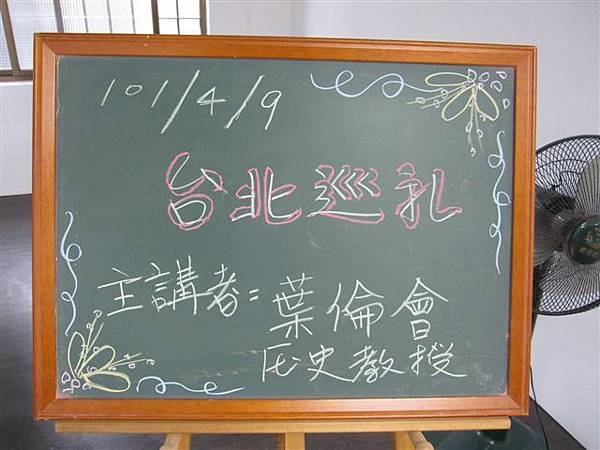 101/4/9
台北巡礼
主講者：葉倫會
历史教授